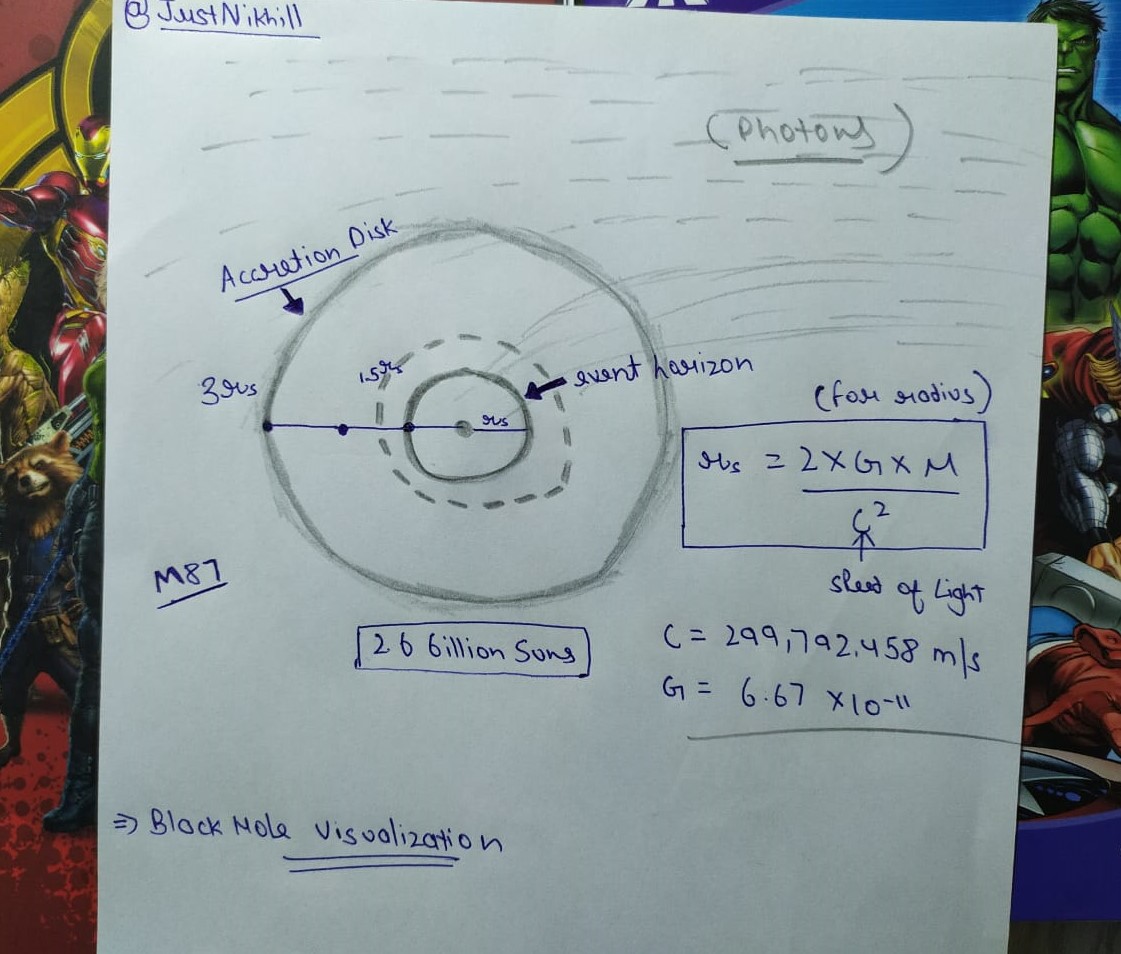 @JustNikhill
(Photons)
Accretion Disk
3rs
1.5rs
event horizon
rs
(for radius)
rs = 2 X G X M
C²
speed of Light
M87
26 billion Suns
C = 299,792,458 m/s
G = 6.67 X10-11
⇒ Black Hole Visualization